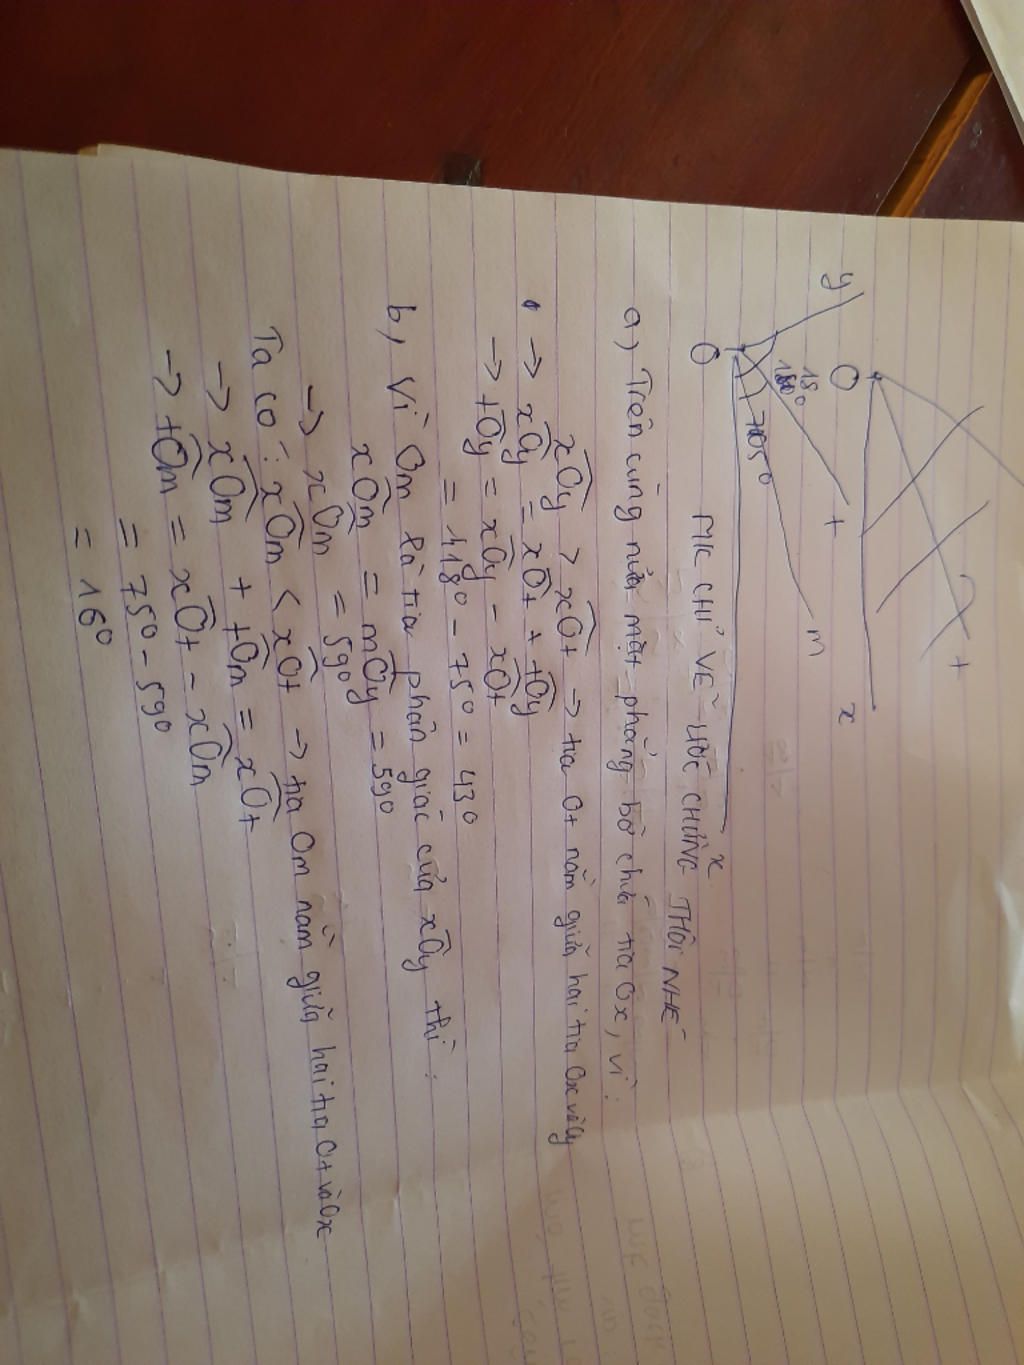 O
x
t
y
118°
75°
t
m
O
x
MK CHỈ VẼ ƯỚC CHỪNG THÔI NHÉ
a) Trên cùng nửa mặt phẳng bờ chứa tia Ox, vì:
xOy > xOt → tia Ot nằm giữa hai tia Ox và Oy
→ xOy = xOt + tOy
→ tOy = xOy - xOt
= 118° - 75° = 43°
b, Vì Om là tia phân giác của xOy thì:
xOm = mOy = 59°
→ xOm = 59°
Ta có: xOm < xOt → tia Om nằm giữa hai tia Ot và Ox
→ xOm + tOm = xOt
→ tOm = xOt - xOm
= 75° - 59°
= 16°